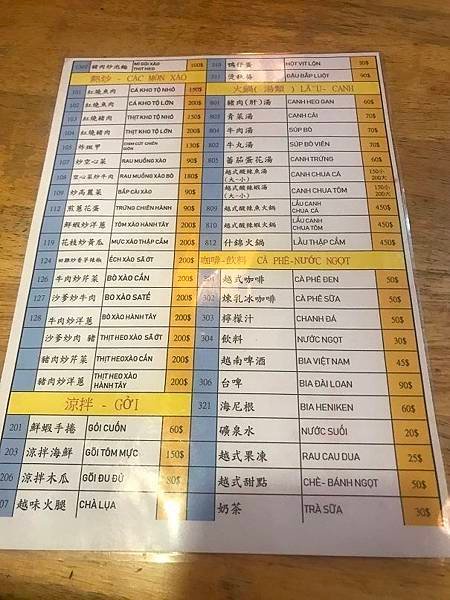 豬肉炒泡麵 MÌ GÓI XÀO THỊT HEO 100$
熱炒 - CÁC MÓN XÀO
101 紅燒魚肉 CÁ KHO TỘ NHỎ 150$
102 紅燒魚肉 CÁ KHO TỘ LỚN 200$
103 紅燒豬肉 THỊT KHO TỘ NHỎ 150$
104 紅燒豬肉 THỊT KHO TỘ LỚN 200$
105 炸雞甲 CHIM CÚT CHIÊN GIÒN 130$
107 炒空心菜 RAU MUỐNG XÀO 90$
108 空心菜炒牛肉 RAU MUỐNG XÀO BÒ 180$
109 炒高麗菜 BẮP CẢI XÀO 90$
112 煎蔥花蛋 TRỨNG CHIÊN HÀNH 90$
鮮蝦炒洋蔥 TÔM XÀO HÀNH TÂY 200$
119 花枝炒黃瓜 MỰC XÀO THẬP CẨM 200$
124 ẾCH XÀO SẢ ỚT 200$
126 牛肉炒芹菜 BÒ XÀO CẦN 200$
127 沙爹炒牛肉 BÒ XÀO SATẾ 200$
128 牛肉炒洋蔥 BÒ XÀO HÀNH TÂY 200$
沙爹炒肉 豬 THỊT HEO XÀO SẢ ỚT 200$
豬肉炒芹菜 THỊT HEO XÀO CẦN 200$
豬肉炒洋蔥 THỊT HEO XÀO HÀNH TÂY 200$
涼拌 - GỎI
201 鮮蝦手捲 GỎI CUỐN 60$
203 涼拌海鮮 GỎI TÔM MỰC 150$
206 涼拌木瓜 GỎI ĐU ĐỦ 80$
07 越味火腿 CHẢ LỤA
310 鴨仔蛋 HỘT VỊT LỘN 30$
311 燙秋葵 ĐẬU BẮP LUỘT 90$
火鍋(湯類) LẨU- CANH
801 豬肉(肝)湯 CANH HEO GAN 60$
803 青菜湯 CANH CẢI 70$
804 牛肉湯 SÚP BÒ 70$
802 牛丸湯 SÚP BÒ VIÊN 70$
805 蕃茄蛋花湯 CANH TRỨNG 60$
越式酸辣魚湯 (大-小) CANH CHUA CÁ 150小 200大
越式酸辣蝦湯 (大-小) CANH CHUA TÔM 150小 200大
809 越式酸辣魚火鍋 LẨU CANH CHUA CÁ 450$
越式酸辣蝦火鍋 LẨU CANH CHUA TÔM 450$
812 什錦火鍋 LẨU THẬP CẨM 450$
咖啡-飲料 CÀ PHÊ-NƯỚC NGỌT
301 越式咖啡 CÀ PHÊ ĐEN 50$
302 煉乳冰咖啡 CÀ PHÊ SỮA 50$
303 檸檬汁 CHANH ĐÁ 50$
304 飲料 NƯỚC NGỌT 30$
越南啤酒 BIA VIỆT NAM 45$
306 台啤 BIA ĐÀI LOAN 90$
321 海尼根 BIA HENIKEN 60$
礦泉水 NƯỚC SUỐI 20$
越式果凍 RAU CAU DUA 25$
越式甜點 CHÈ- BÁNH NGỌT 50$
奶茶 TRÀ SỮA 30$